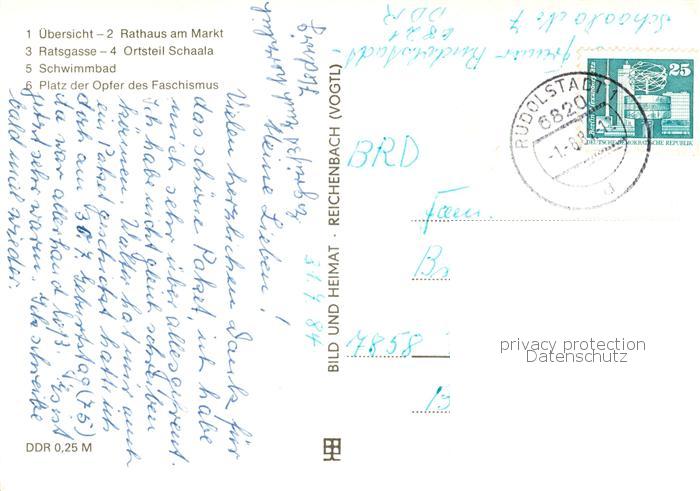 1 Übersicht – 2 Rathaus am Markt
3 Ratsgasse – 4 Ortsteil Schaala
5 Schwimmbad
6 Platz der Opfer des Faschismus
Schaala Nr. 7
Rudolstadt
6821
DDR
31. 7. 84
Meine Lieben!
Vielen herzlichen Dank für
das schöne Paket, ich habe
mich sehr über alles gefreut.
Ich habe nicht gleich schreiben
können. Walter hat mir auch
ein Paket geschickt hatte ich
doch am 30. 7 Geburtstag (75)
da war allerhand los. Es ist
jetzt sehr warm. Ich schreibe
bald mal wieder.
BILD UND HEIMAT · REICHENBACH (VOGTL)
BRD
Fam.
Br
7858
B
RUDOLSTADT 1
6820
-1.-8.8
d
25
DEUTSCHE DEMOKRATISCHE REPUBLIK
privacy protection
Datenschutz
DDR 0,25 M